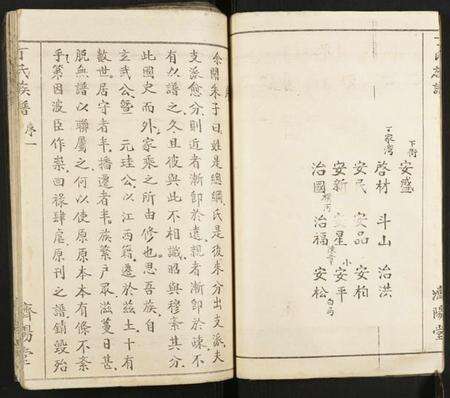 下街
安盛
丁家湾
啓材 斗山 治洪
安民 安品 安柏
安新 星 安平
治國 治福 安松
濟陽堂
余聞朱子曰姓是總綱氏是後來分出支派夫
支派愈分則近者漸即於遠親者漸即於疎不
有以譜之久且彼與此不相識昭與穆紊其分
此國史而外家乘之所由修也思吾族自
玄武公暨 元珪公以江西籍遷於兹土十有
數世居守者半播遷者半族繁戶衆滋蔓日甚
脱無譜以聯屬之何以使原原本本有條不紊
乎第因波臣作祟回禄肆虐原刊之譜銷毀殆
丁氏族譜 序一
濟陽堂